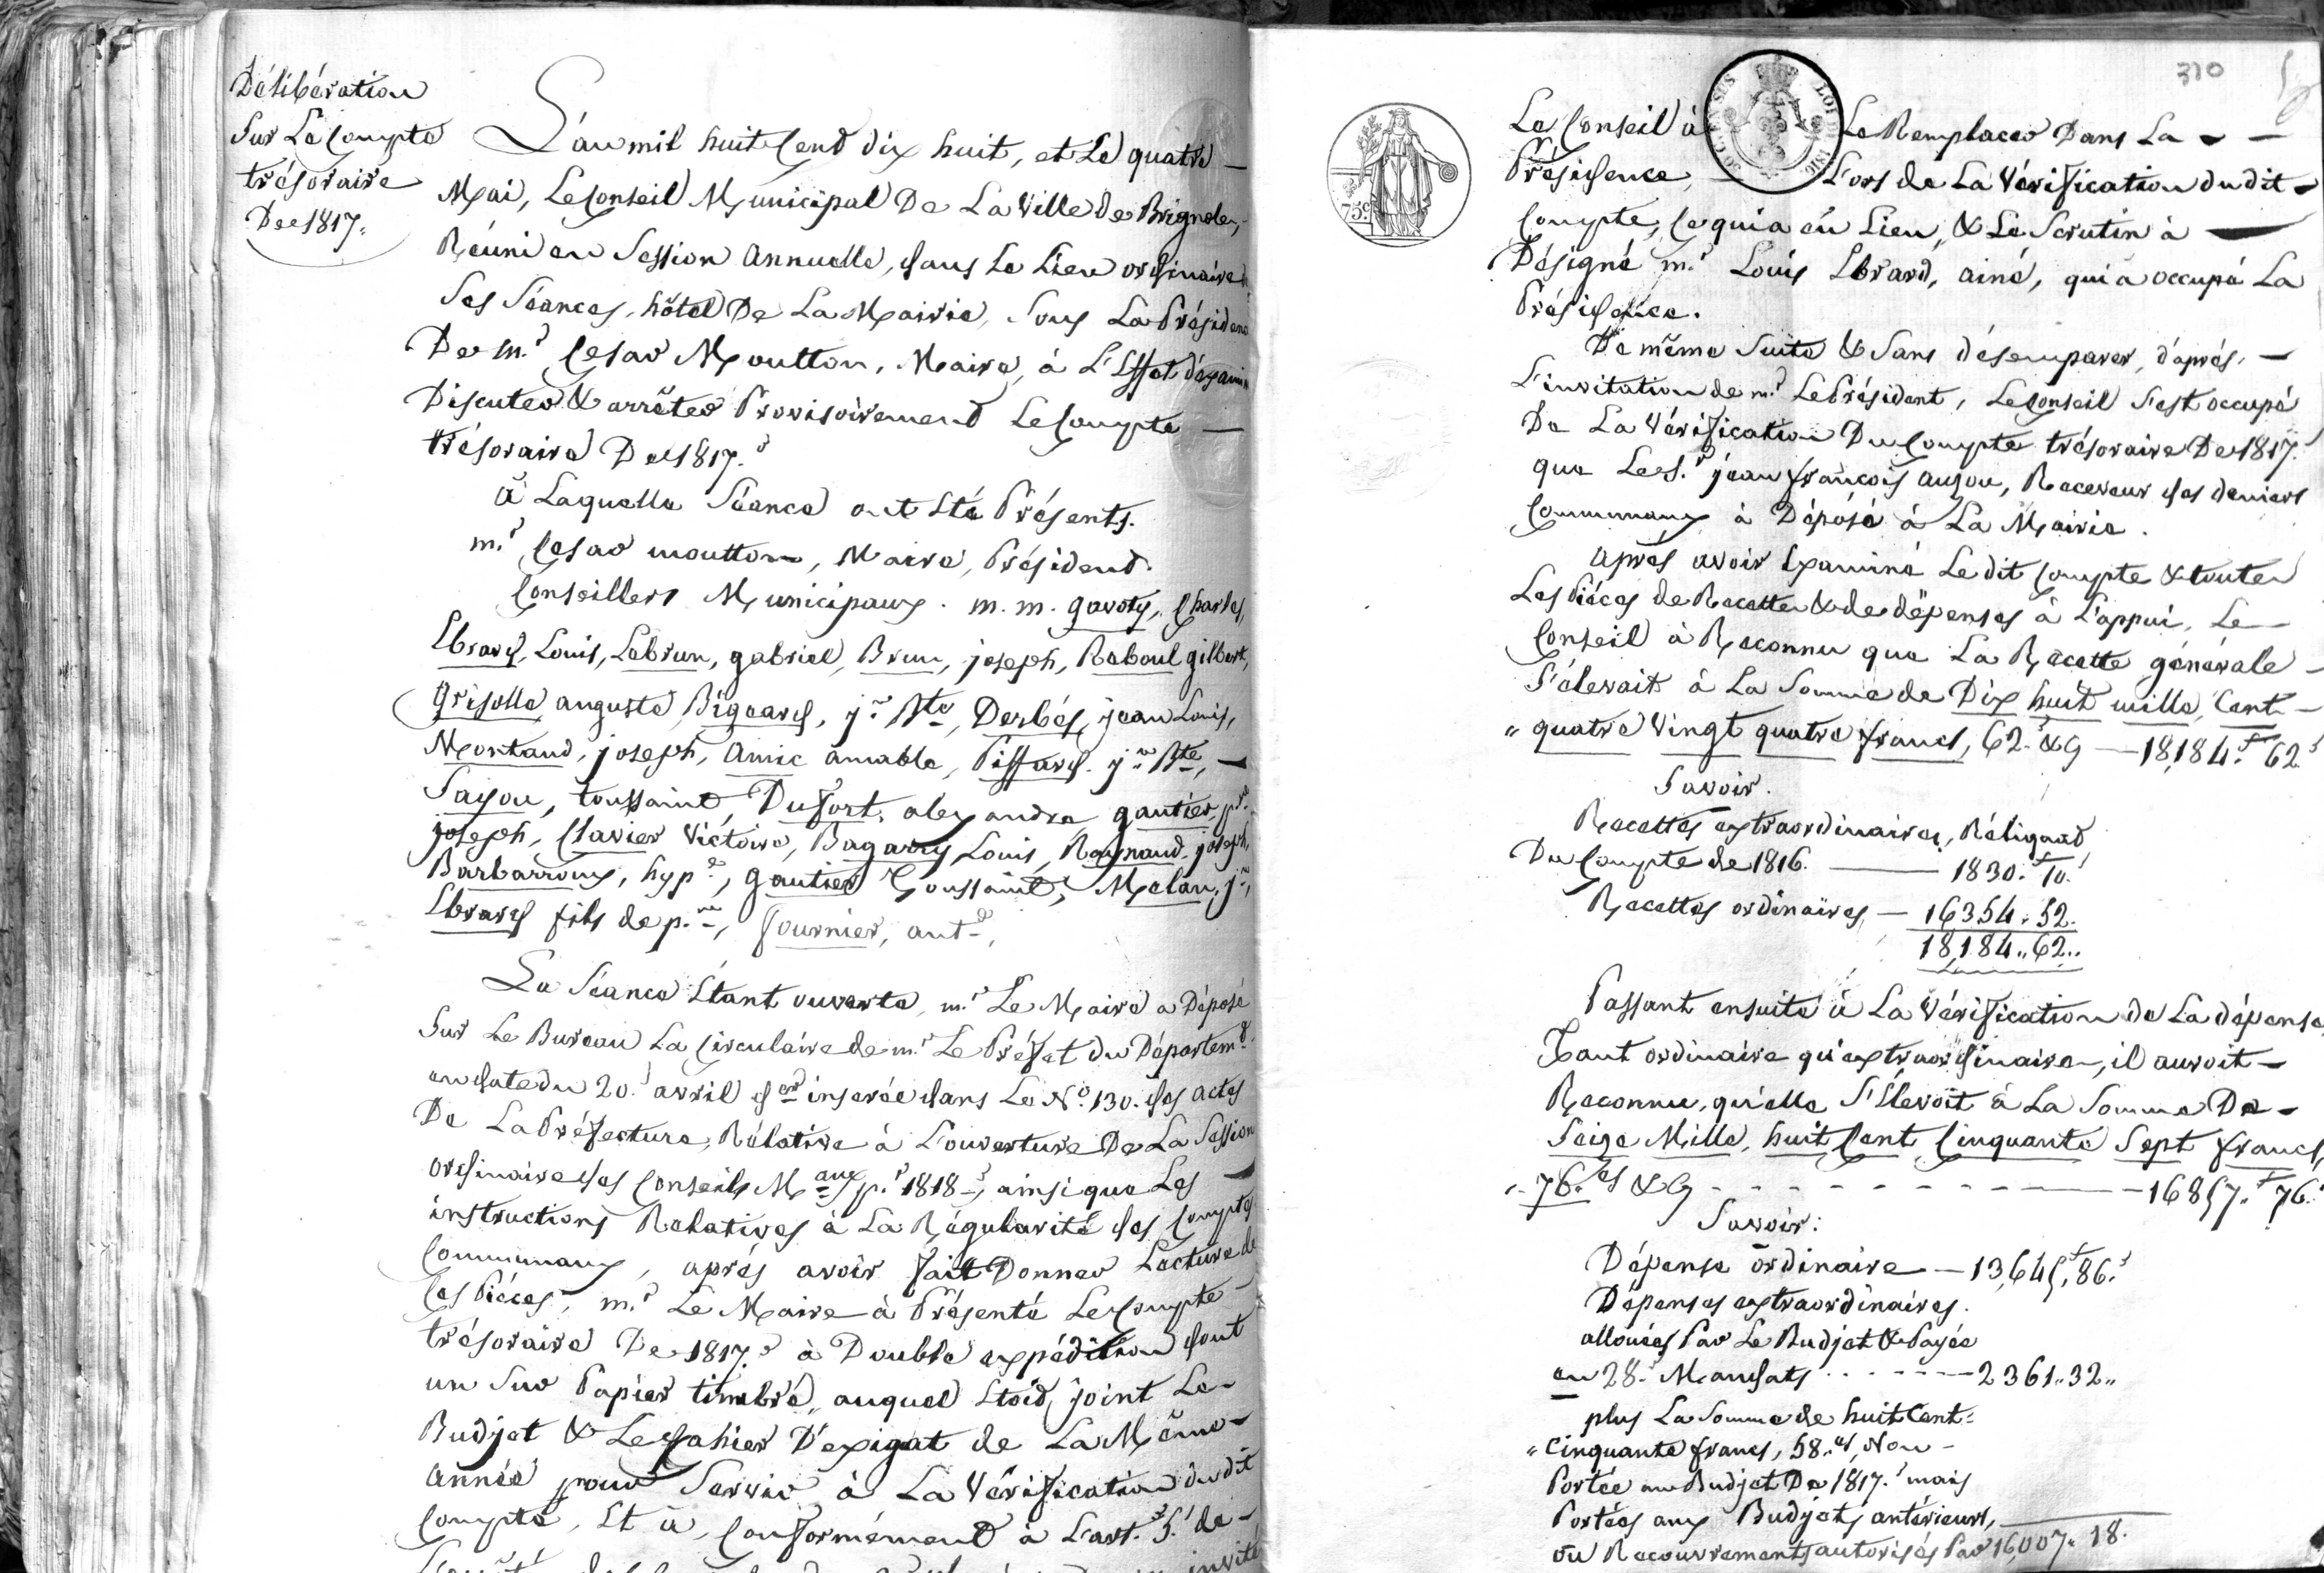 Délibération
Sur Le Compte
trésoraire
De 1817.
L'an mil huit Cent dix huit, et Le quatre
Mai, Le Conseil Municipal De La Ville de Brignoles,
Réuni en Session annuelle, dans Le Lieu ordinaire de
Ses Séances, hôtel De La Mairie, Sous La Présidence
De m.r Cesar Moutton, Maire, à L'Effet d'examiner
Discuter & arrêter Provisoirement Le Compte
trésoraire De 1817.
à Laquelle Séance ont Eté Présents.
m.r Cesar moutton, Maire, Président.
Conseillers Municipaux. m.m. gavoty, Charles,
Ebrard, Louis, Lebrun, gabriel, Brun, joseph, Reboul gilbert,
Grisolle auguste, Bigeard, j.n Bte, Derbés, jean Louis,
Mortaud, joseph, Amic amable, Piffard. j.n Bte,
Sayou, toussaint, Dufort, alexandre gautier, p.re
joseph, Clavier Victoire, Bagarry Louis, Raynaud. joseph,
Barbarroux, hyp.te, gautier Toussaint, Melan, j.n,
Ebrard fils de p.re, fournier, ant.e,
La Séance Etant ouverte, m.r Le Maire a Déposé
Sur Le Bureau La Circulaire de m.r Le Préfet du Départem.t
en date du 20. avril d.er inserée dans Le N.o 130. des actes
De La Préfecture, Rélative à L'ouverture De La Session
ordinaire des Conseils M.aux p.r 1818, ainsi que Les
instructions Relatives à La Régularité des Comptes
Communaux, aprés avoir fait Donner Lecture de
Ces Piéces, m.r Le Maire à Présenté Le Compte
trésoraire De 1817. à Double expédition dont
un Sur Papier timbré, auquel Etoit joint Le
Budjet & Le Cahier D'exigat de La Même
année pour Servir à La Vérification du dit
Compte, Et à, Conformément à L'art. 5. de
invité
310
Le Conseil à Le Remplacer Dans La
Présidence, Lors de La Vérification du dit
Compte, Ce qui a eu Lieu, & Le Scrutin à
Désigné m.r Louis Ebrard, ainé, qui a occupé La
Présidence.
De même Suite & Sans désemparer, d'aprés
L'invitation de m.r Le Président, Le Conseil S'est occupé
De La Vérification Du Compte trésoraire De 1817.
que Le S.r jean françois augou, Receveur des deniers
Communaux à Déposé à La Mairie.
aprés avoir Examiné Le dit Compte & toutes
Les Piéces de Recettes & de dépenses à L'appui, Le
Conseil à Reconnu que La Recette générale
S'élevait à La Somme de Dix huit mille, Cent
quatre Vingt quatre francs, 62. &c — 18,184.f 62.
Savoir.
Recettes extraordinaires, Réliquad
Du Compte de 1816. — 1830.f 10.
Recettes ordinaires, — 16354. 52.
18,184.. 62..
Passant ensuite à La Vérification de La dépense
Tant ordinaire qu'extraordinaire, il auroit
Reconnu, qu'elle S'Elevoit à La Somme De
Seize Mille, huit Cent Cinquante Sept francs,
76.es &c - - - - - 16857.f 76.
Savoir:
Dépense ordinaire — 13,645.f 86.
Dépenses extraordinaires.
allouées Par Le Budjet & Payée
en 28. Mandats - - - - 2361.. 32..
plus La Somme de huit Cent
Cinquante francs, 58.es, Non
Portée au Budjet De 1817. mais
Portées aux Budjets antérieurs,
ou Recouvrements autorisés Par 16,007. 18.
75c
50 CEN SUS
LOI DE 1816